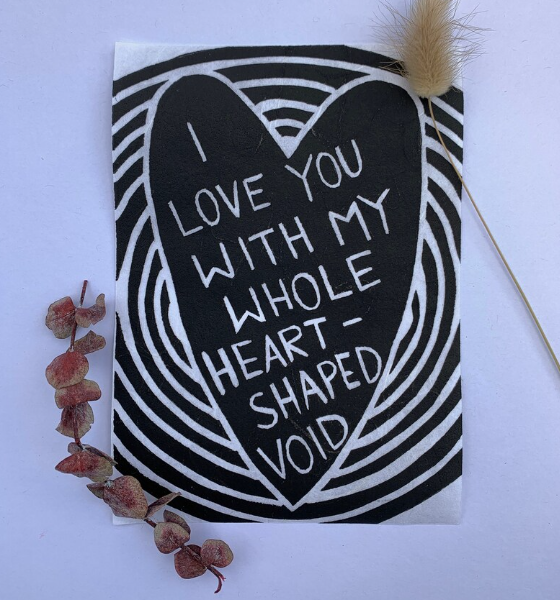 I
LOVE YOU
WITH MY
WHOLE
HEART-
SHAPED
VOID